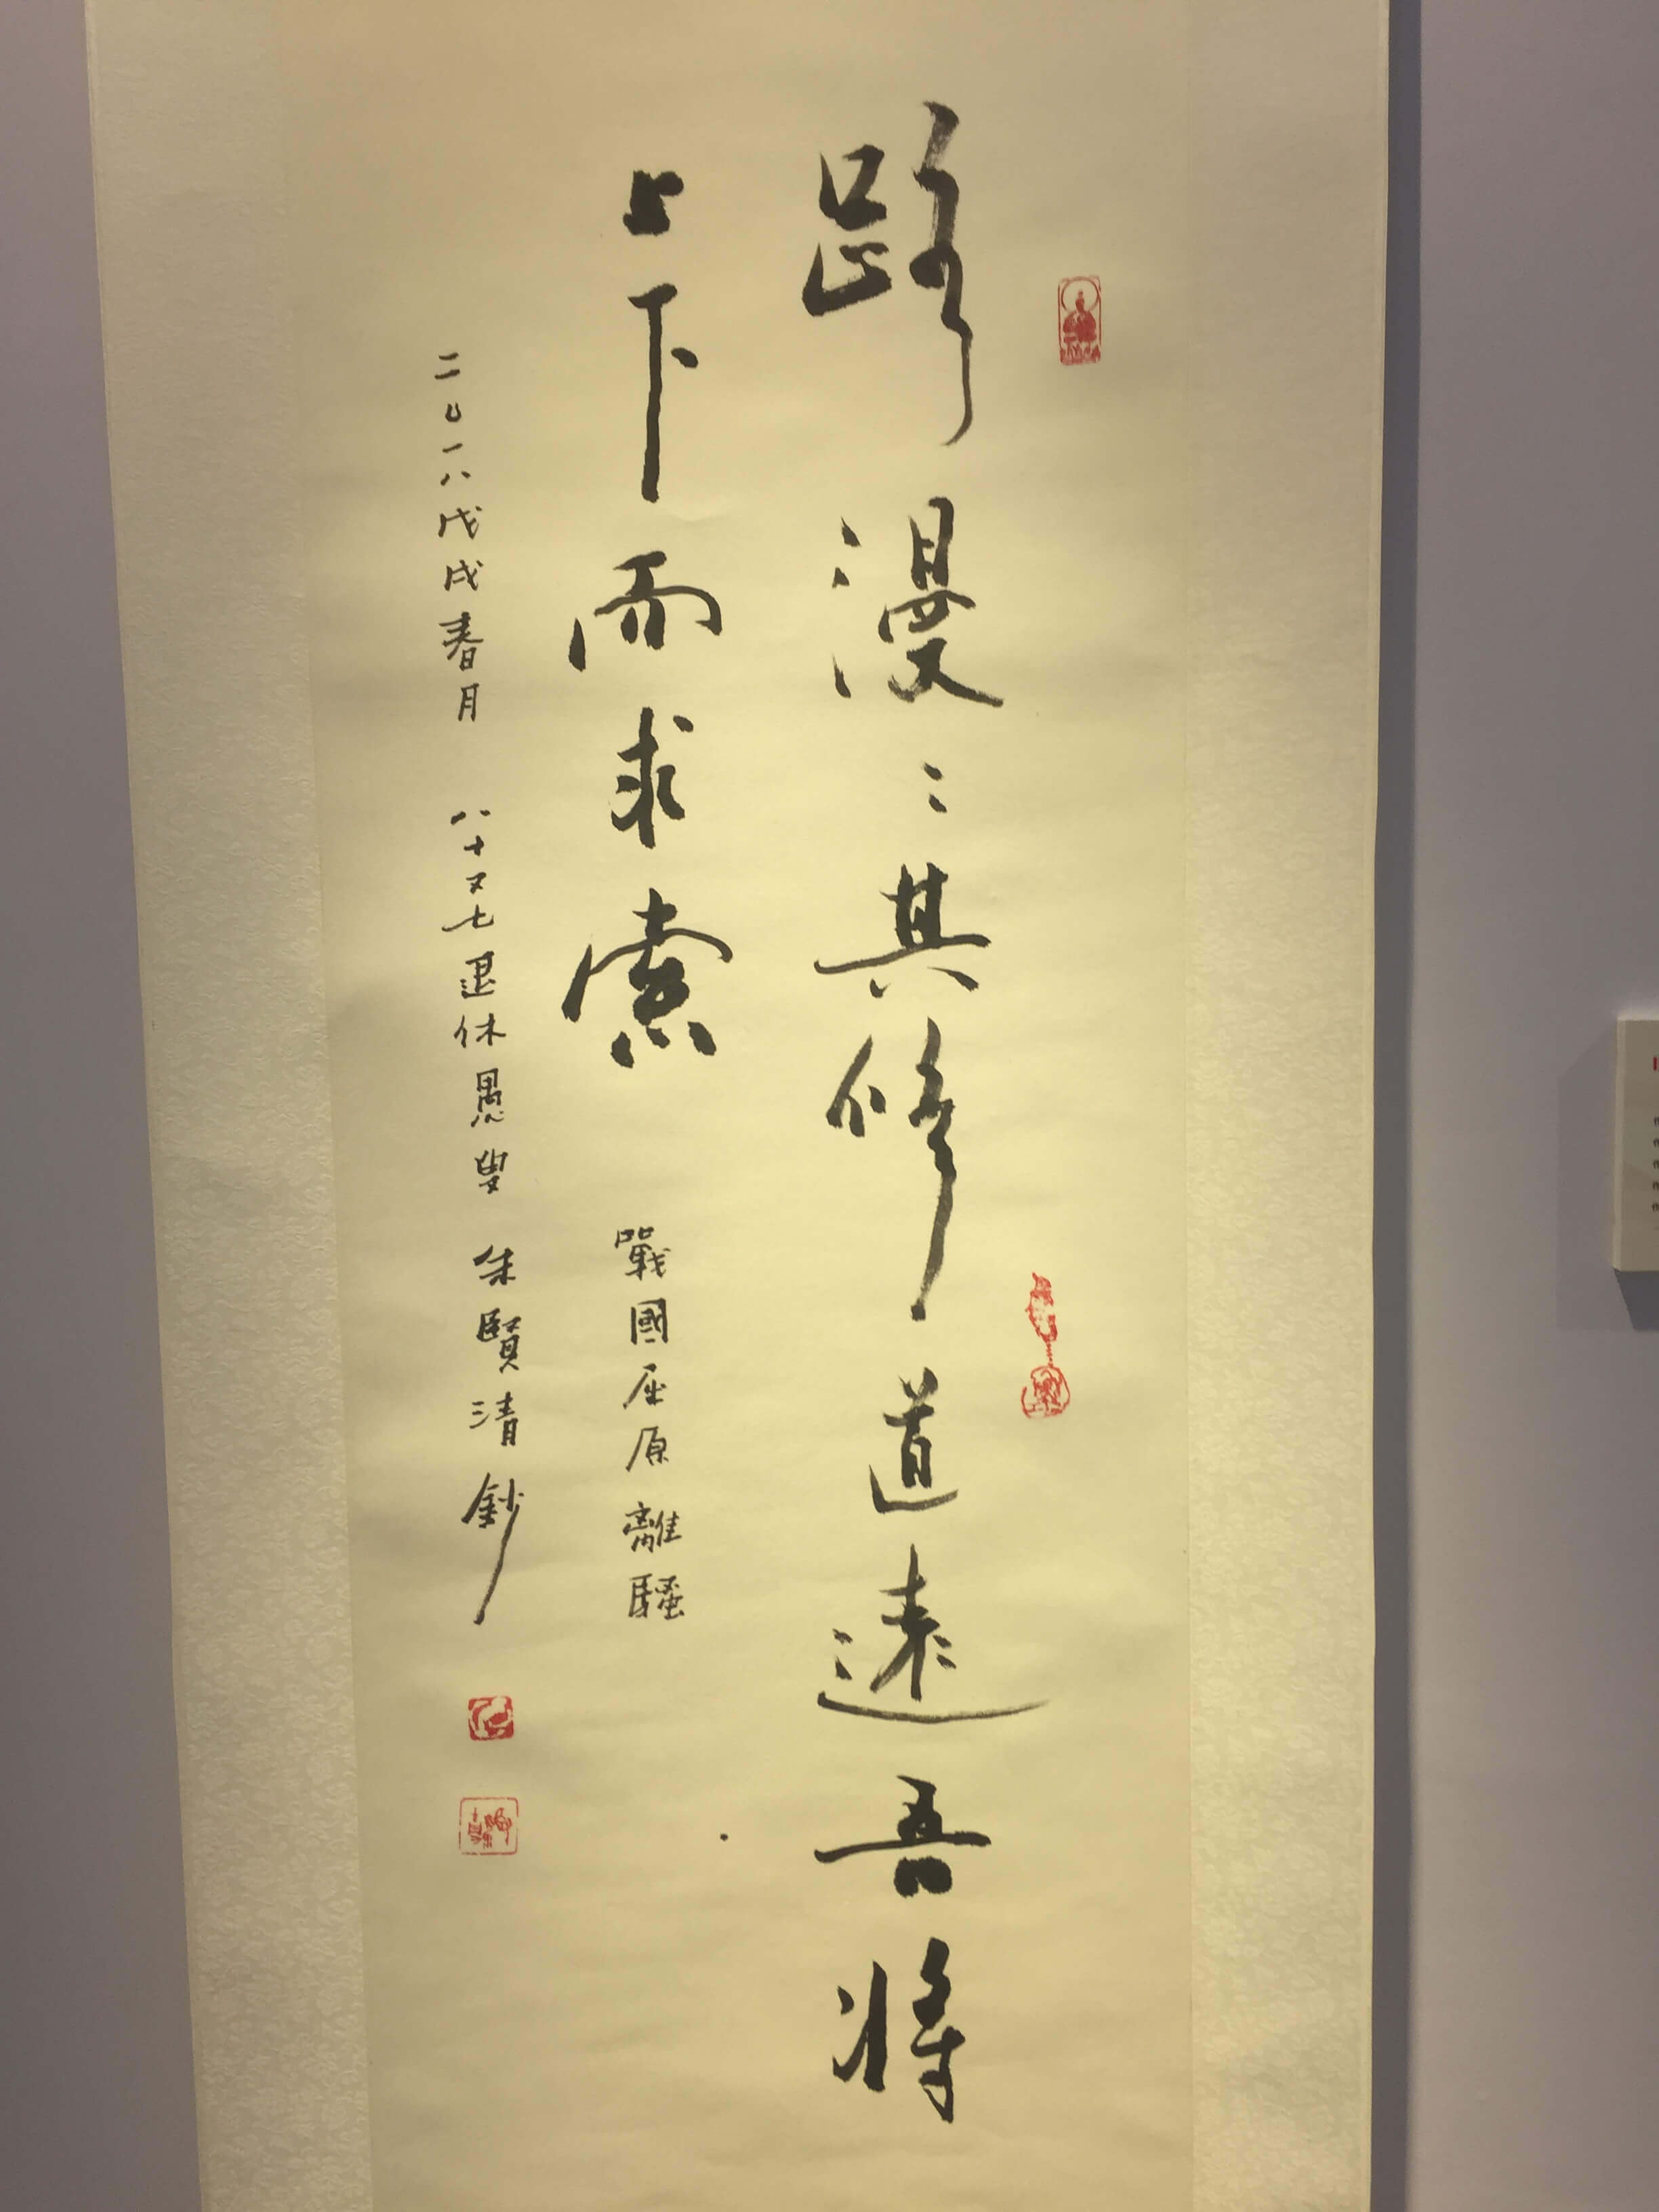 路漫〻其修道遠吾將
上下而求索
戰國屈原離騷
二〇一八戊戌春月 八十又七退休愚叟 朱賢清鈔